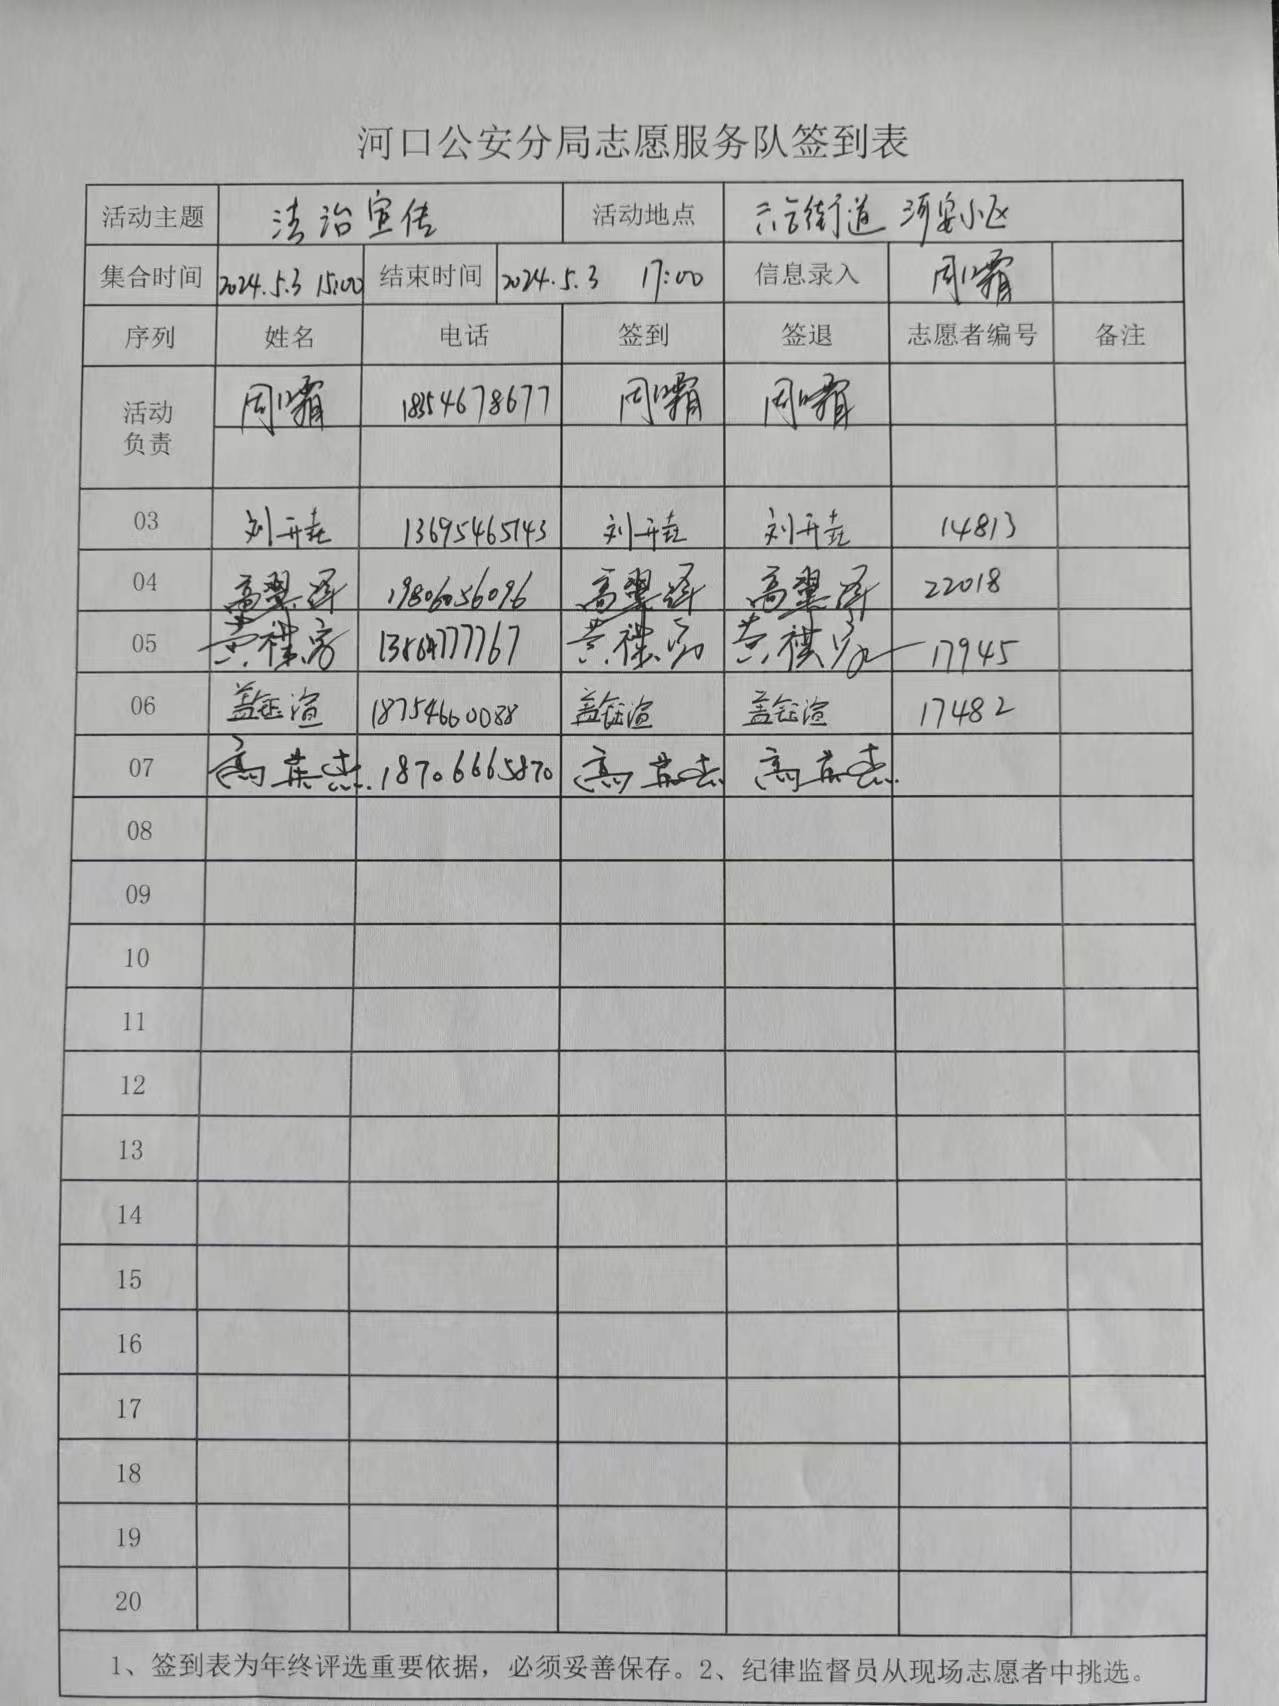 河口公安分局志愿服务队签到表
活动主题 法治宣传 活动地点 六合街道 河安小区
集合时间 2024.5.3 15:00 结束时间 2024.5.3 17:00 信息录入 周霜
序列 姓名 电话 签到 签退 志愿者编号 备注
活动负责 周 18354678677 周 周
03 刘开 13695465743 刘开 刘开 14813
04 高翼泽 19806056096 高翼泽 高翼泽 22018
05 黄祺 黄祺 黄祺 17945
06 盖钰渲 18754660088 盖钰渲 盖钰渲 17482
07 高英杰 18706665870 高英杰 高英杰
08
09
10
11
12
13
14
15
16
17
18
19
20
1、签到表为年终评选重要依据，必须妥善保存。2、纪律监督员从现场志愿者中挑选。